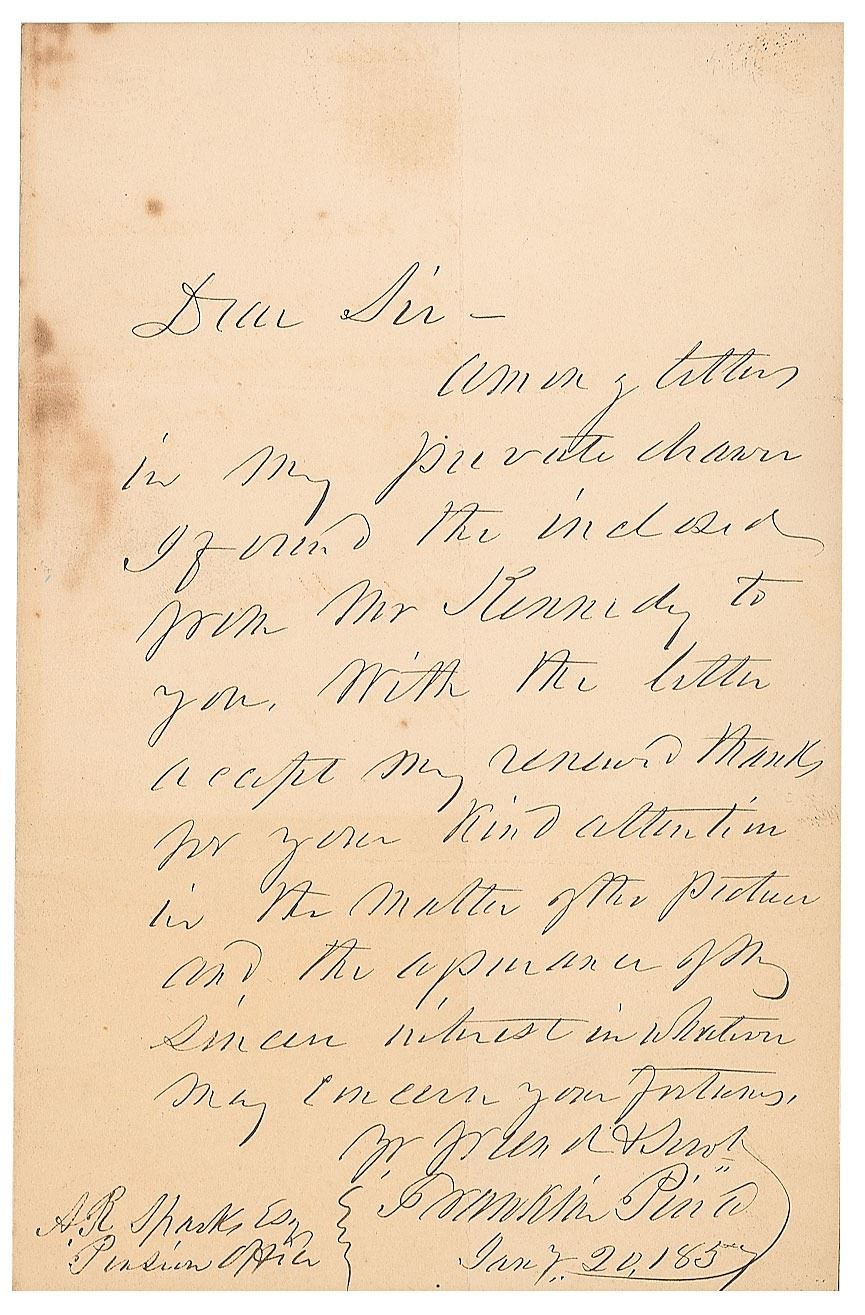 Dear Sir -
Among letters
in my private drawer
I found the inclosed
from Mr Kennedy to
you. With the letter
accept my renewed thanks
for your kind attention
in the matter of the picture
and the assurance of my
sincere interest in whatever
may concern your fortunes.
Yr friend & Servt
Franklin Pierce
A. R. Sparks Esq
Pension Office
Jany. 20, 185